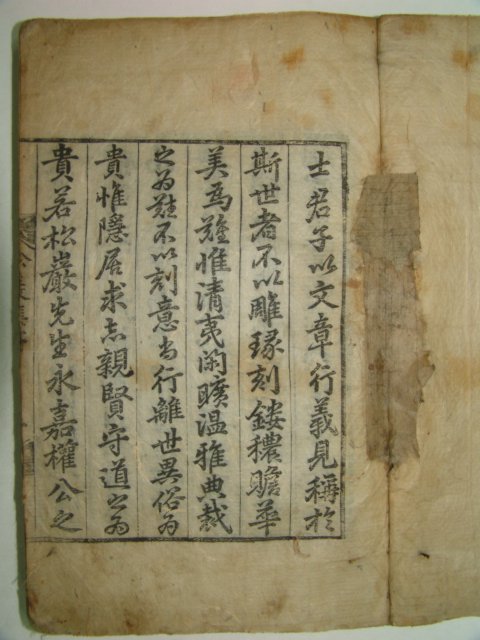 士君子以文章行義見稱於
斯世者不以雕琢刻鏤穠贍華
美爲難惟淸夷閑曠温雅典裁
之爲難不以刻意尙行離世異俗爲
貴惟隱居求志親賢守道之爲
貴若松巖先生永嘉權公之